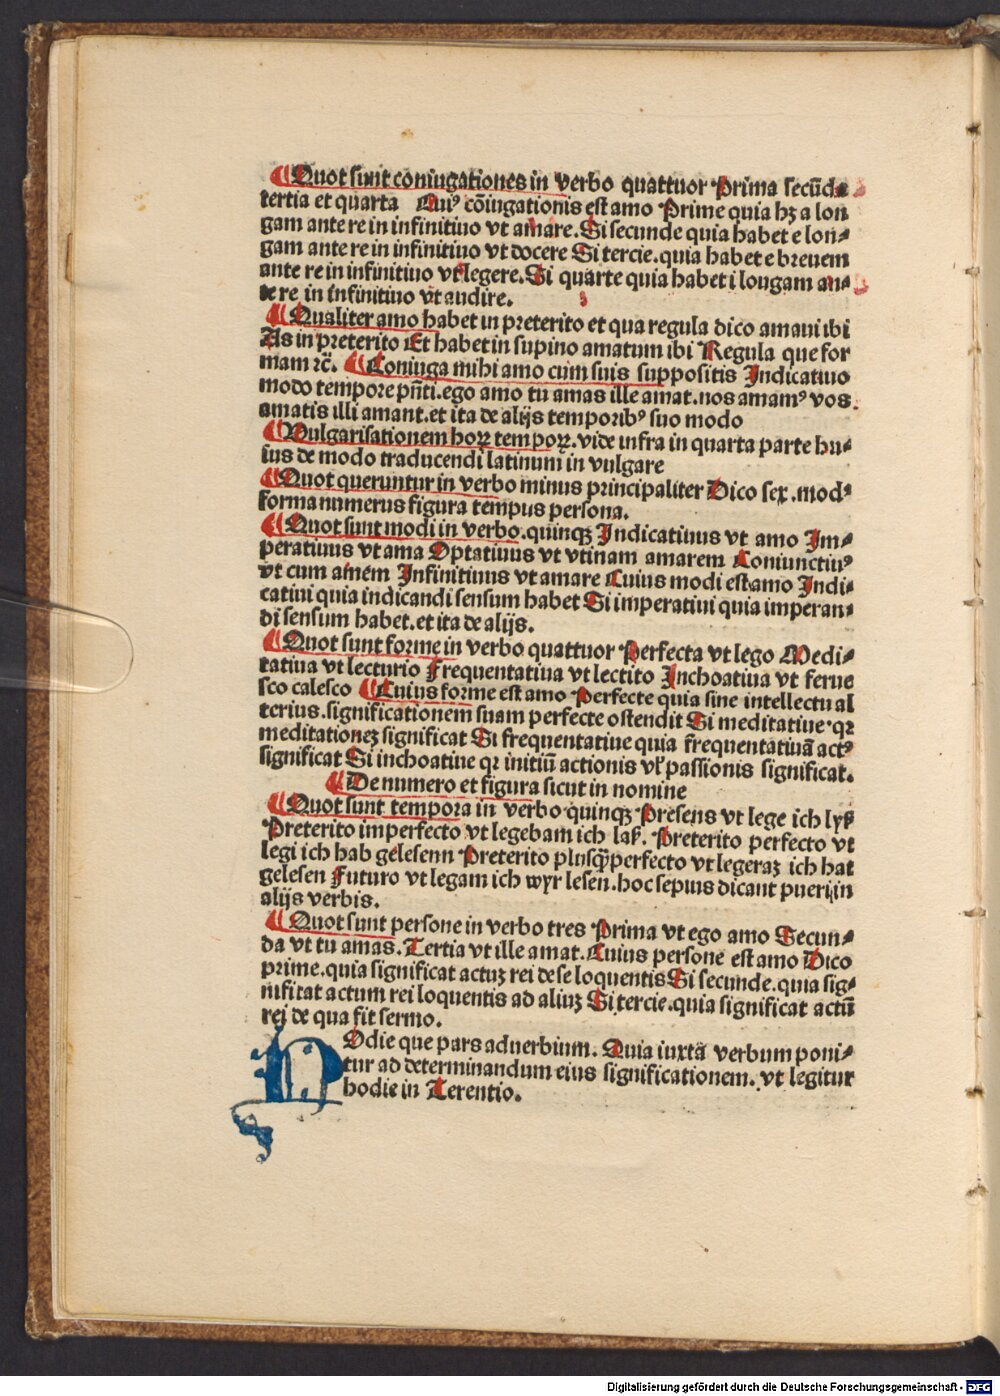 ¶Quot sunt cōniugationes in verbo quattuor Prima secūda
tertia et quarta Cuiꝰ cōiugationis est amo Prime quia hꝫ a lon
gam ante re in infinitiuo vt amare. Si secunde quia habet e lon⸗
gam ante re in infinitiuo vt docere Si tercie. quia habet e breuem
ante re in infinitiuo vt legere. Si quarte quia habet i longam an⸗
te re in infinitiuo vt audire.
¶Qualiter amo habet in preterito et qua regula dico amaui ibi
As in preterito Et habet in supino amatum ibi Regula que for
mam ⁊c̄. ¶Coniuga mihi amo cum suis suppositis Indicatiuo
modo tempore pn̄ti. ego amo tu amas ille amat. nos amamꝰ vos
amatis illi amant. et ita de alijs temporibꝰ suo modo
¶Vulgarisationem horꝝ temporꝝ. vide infra in quarta parte hu⸗
ius de modo traducendi latinum in vulgare
¶Quot queruntur in verbo minus principaliter Dico sex. modꝰ
forma numerus figura tempus persona.
¶Quot sunt modi in verbo. quinqꝫ Indicatiuus vt amo Im⸗
peratiuus vt ama Optatiuus vt vtinam amarem Coniunctiuꝰ
vt cum amem Infinitiuus vt amare Cuius modi est amo Indi⸗
catiui quia indicandi sensum habet Si imperatiui quia imperan⸗
di sensum habet. et ita de alijs.
¶Quot sunt forme in verbo quattuor Perfecta vt lego Medi⸗
tatiua vt lecturio Frequentatiua vt lectito Inchoatiua vt ferue
sco calesco ¶Cuius forme est amo Perfecte quia sine intellectu al
terius. significationem suam perfecte ostendit Si meditatiue. qꝛ
meditationeꝫ significat Si frequentatiue quia frequentatiuā actꝰ
significat Si inchoatiue qꝛ initiū actionis vl̓ passionis significat.
¶De numero et figura sicut in nomine
¶Quot sunt tempora in verbo quinqꝫ Presens vt lege ich lyß
Preterito imperfecto vt legebam ich laß. Preterito perfecto vt
legi ich hab gelesenn Preterito plusq̄perfecto vt legeraꝫ ich hat
gelesen Futuro vt legam ich wyr lesen. hoc sepius dicant pueri in
alijs verbis.
¶Quot sunt persone in verbo tres Prima vt ego amo Secun⸗
da vt tu amas. Tertia vt ille amat. Cuius persone est amo Dico
prime. quia significat actuꝫ rei de se loquentis Si secunde. quia sig⸗
nificat actum rei loquentis ad aliuꝫ Si tercie. quia significat actū
rei de qua fit sermo.
HOdie que pars aduerbium. Quia iuxta verbum poni⸗
tur ad determinandum eius significationem. vt legitur
hodie in Terentio.
Digitalisierung gefördert durch die Deutsche Forschungsgemeinschaft - DFG